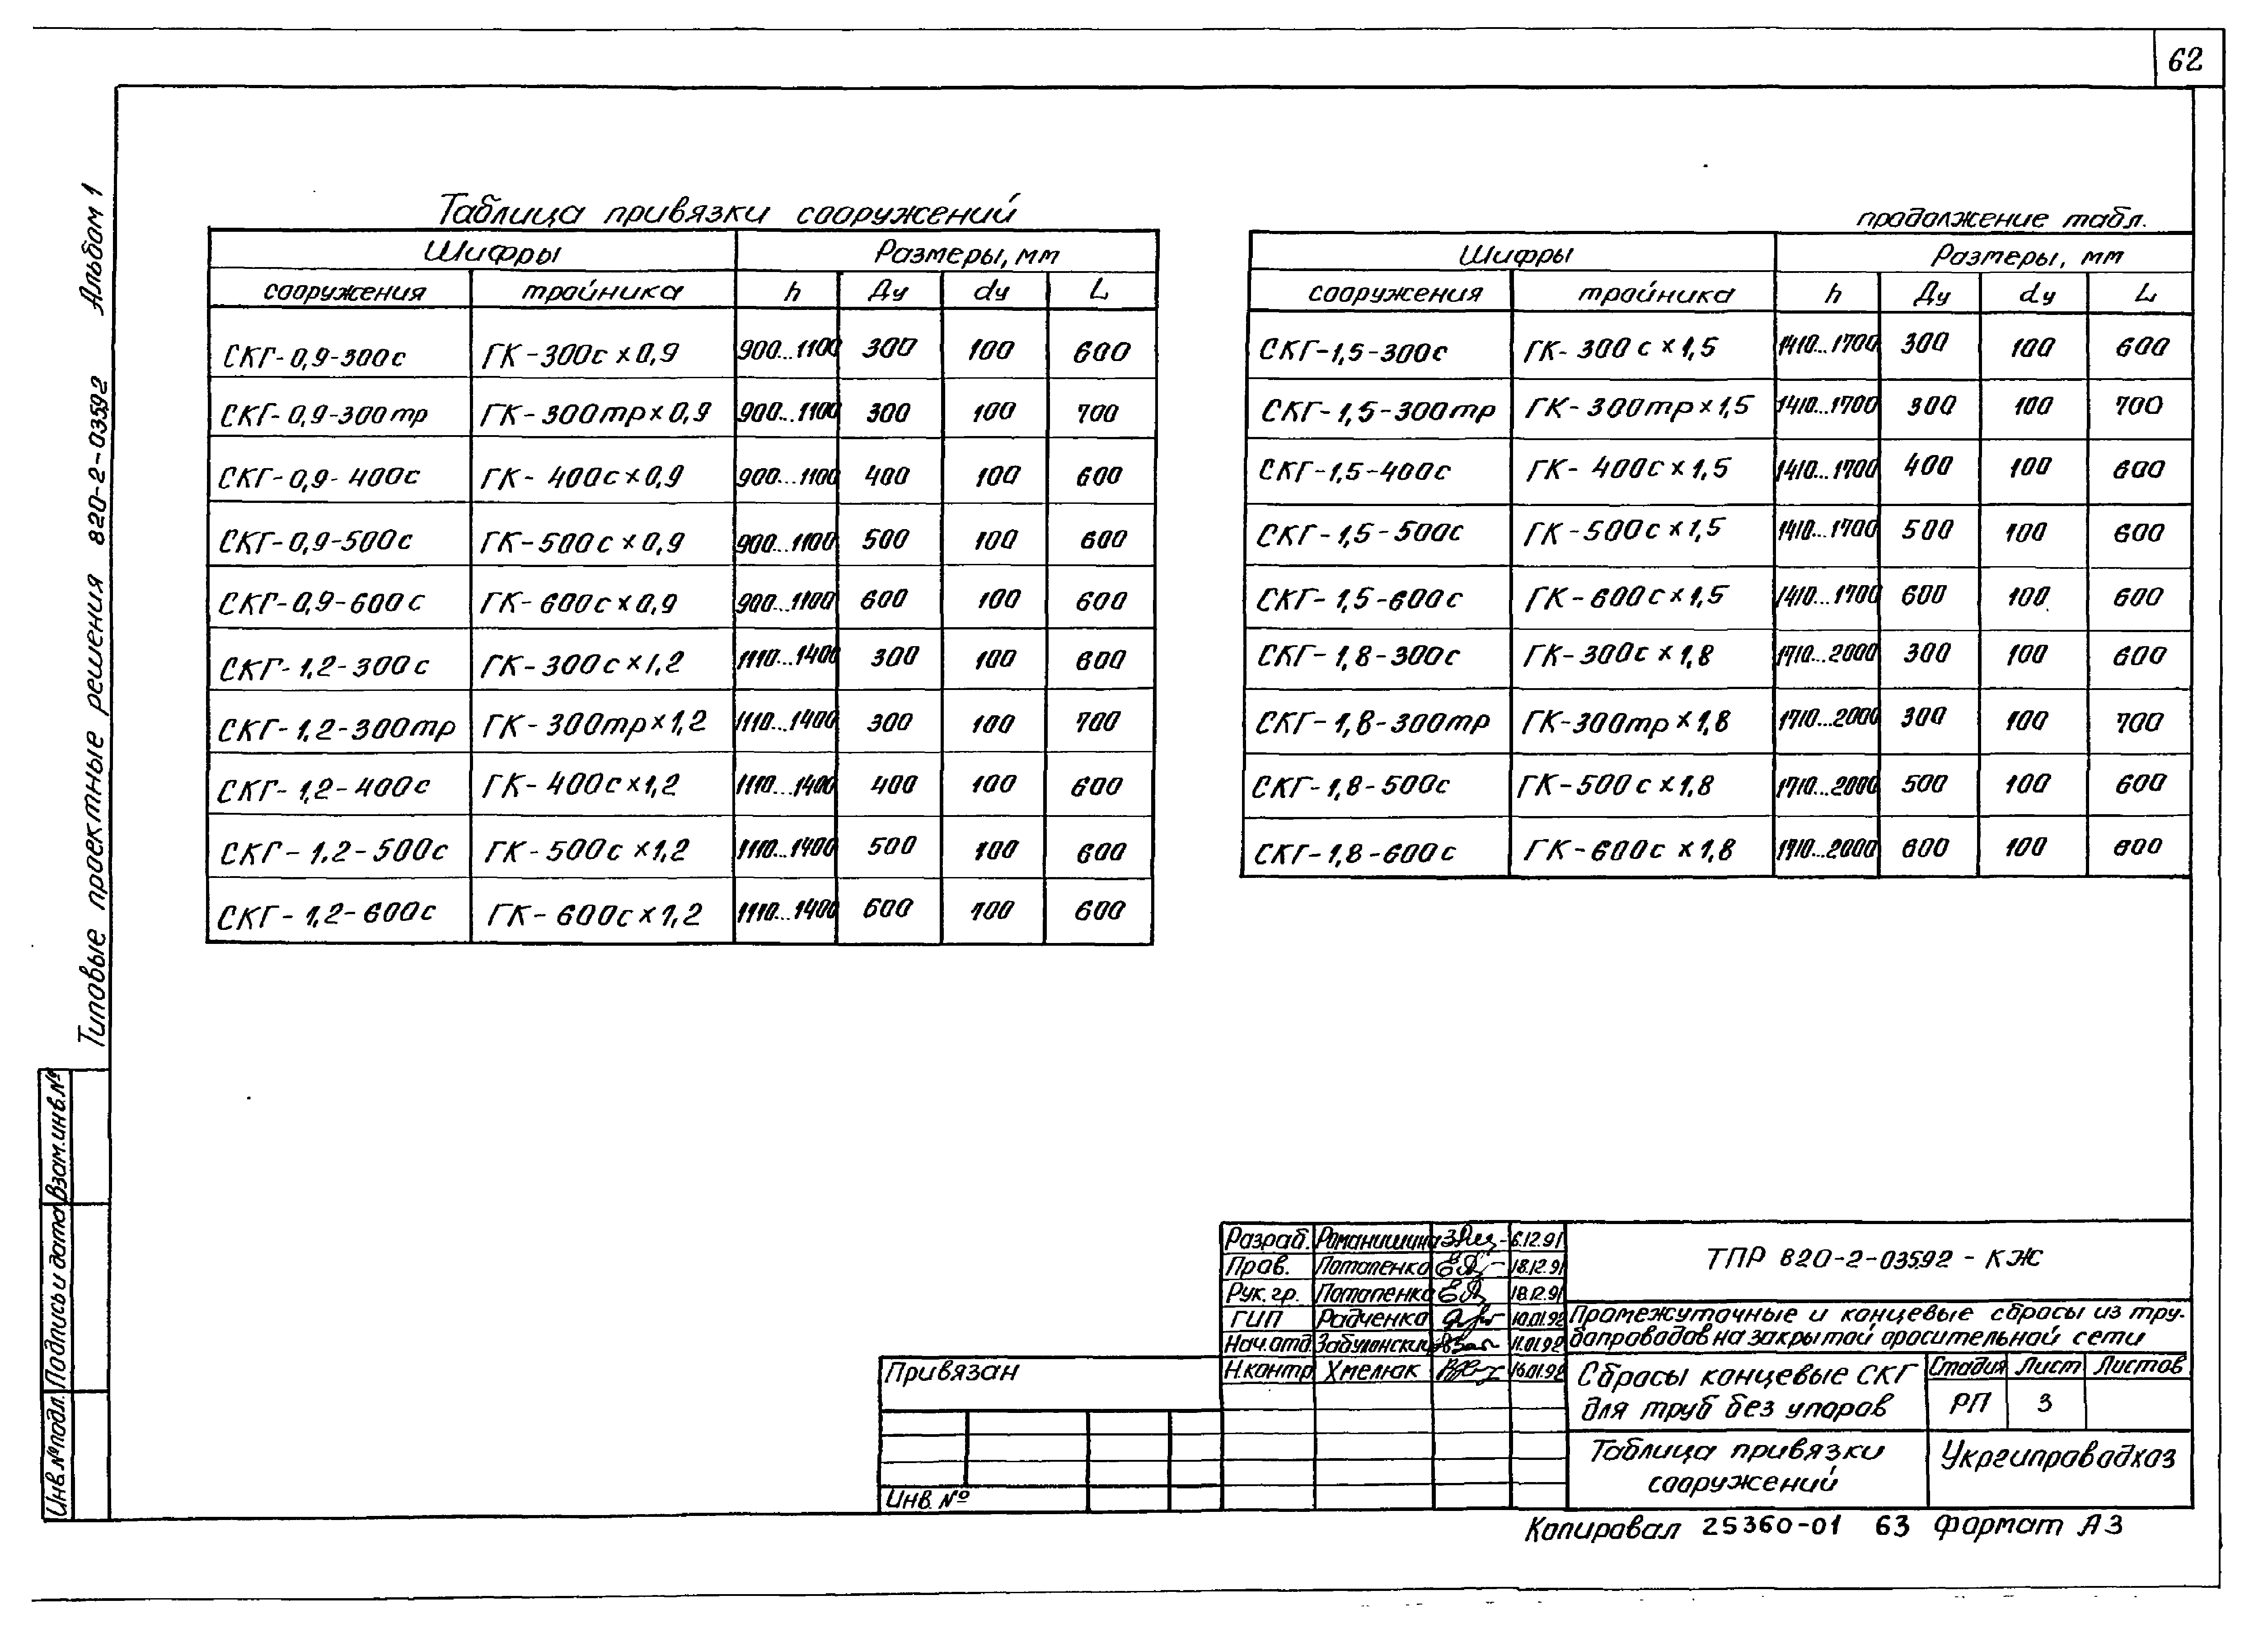 62
Альбом 1
Типовые проектные решения 820-2-03592
Таблица привязки сооружений
Шифры Размеры, мм
сооружения тройника h Ду dу L
СКГ-0,9-300с ГК-300с×0,9 900...1100 300 100 600
СКГ-0,9-300тр ГК-300тр×0,9 900...1100 300 100 700
СКГ-0,9-400с ГК-400с×0,9 900...1100 400 100 600
СКГ-0,9-500с ГК-500с×0,9 900...1100 500 100 600
СКГ-0,9-600с ГК-600с×0,9 900...1100 600 100 600
СКГ-1,2-300с ГК-300с×1,2 1110...1400 300 100 600
СКГ-1,2-300тр ГК-300тр×1,2 1110...1400 300 100 700
СКГ-1,2-400с ГК-400с×1,2 1110...1400 400 100 600
СКГ-1,2-500с ГК-500с×1,2 1110...1400 500 100 600
СКГ-1,2-600с ГК-600с×1,2 1110...1400 600 100 600
продолжение табл.
Шифры Размеры, мм
сооружения тройника h Ду dу L
СКГ-1,5-300с ГК-300с×1,5 1410...1700 300 100 600
СКГ-1,5-300тр ГК-300тр×1,5 1410...1700 300 100 700
СКГ-1,5-400с ГК-400с×1,5 1410...1700 400 100 600
СКГ-1,5-500с ГК-500с×1,5 1410...1700 500 100 600
СКГ-1,5-600с ГК-600с×1,5 1410...1700 600 100 600
СКГ-1,8-300с ГК-300с×1,8 1710...2000 300 100 600
СКГ-1,8-300тр ГК-300тр×1,8 1710...2000 300 100 700
СКГ-1,8-500с ГК-500с×1,8 1710...2000 500 100 600
СКГ-1,8-600с ГК-600с×1,8 1710...2000 600 100 600
Взам.инв.№
Подпись и дата
Инв.№подл.
Привязан
Инв.№
Разраб. Романишина 6.12.91
Пров. Потапенко 18.12.91
Рук.гр. Потапенко 18.12.91
ГИП Радченко 10.01.92
Нач.отд. 11.01.92
Н.контр. Хмелюк 16.01.92
ТПР 820-2-03592-КЖ
Промежуточные и концевые сбросы из тру-
бопроводов на закрытой оросительной сети
Сбросы концевые СКГ
для труб без упоров
Стадия Лист Листов
РП 3
Таблица привязки
сооружений
Укргипроводхоз
Копировал 25360-01 63 Формат А3